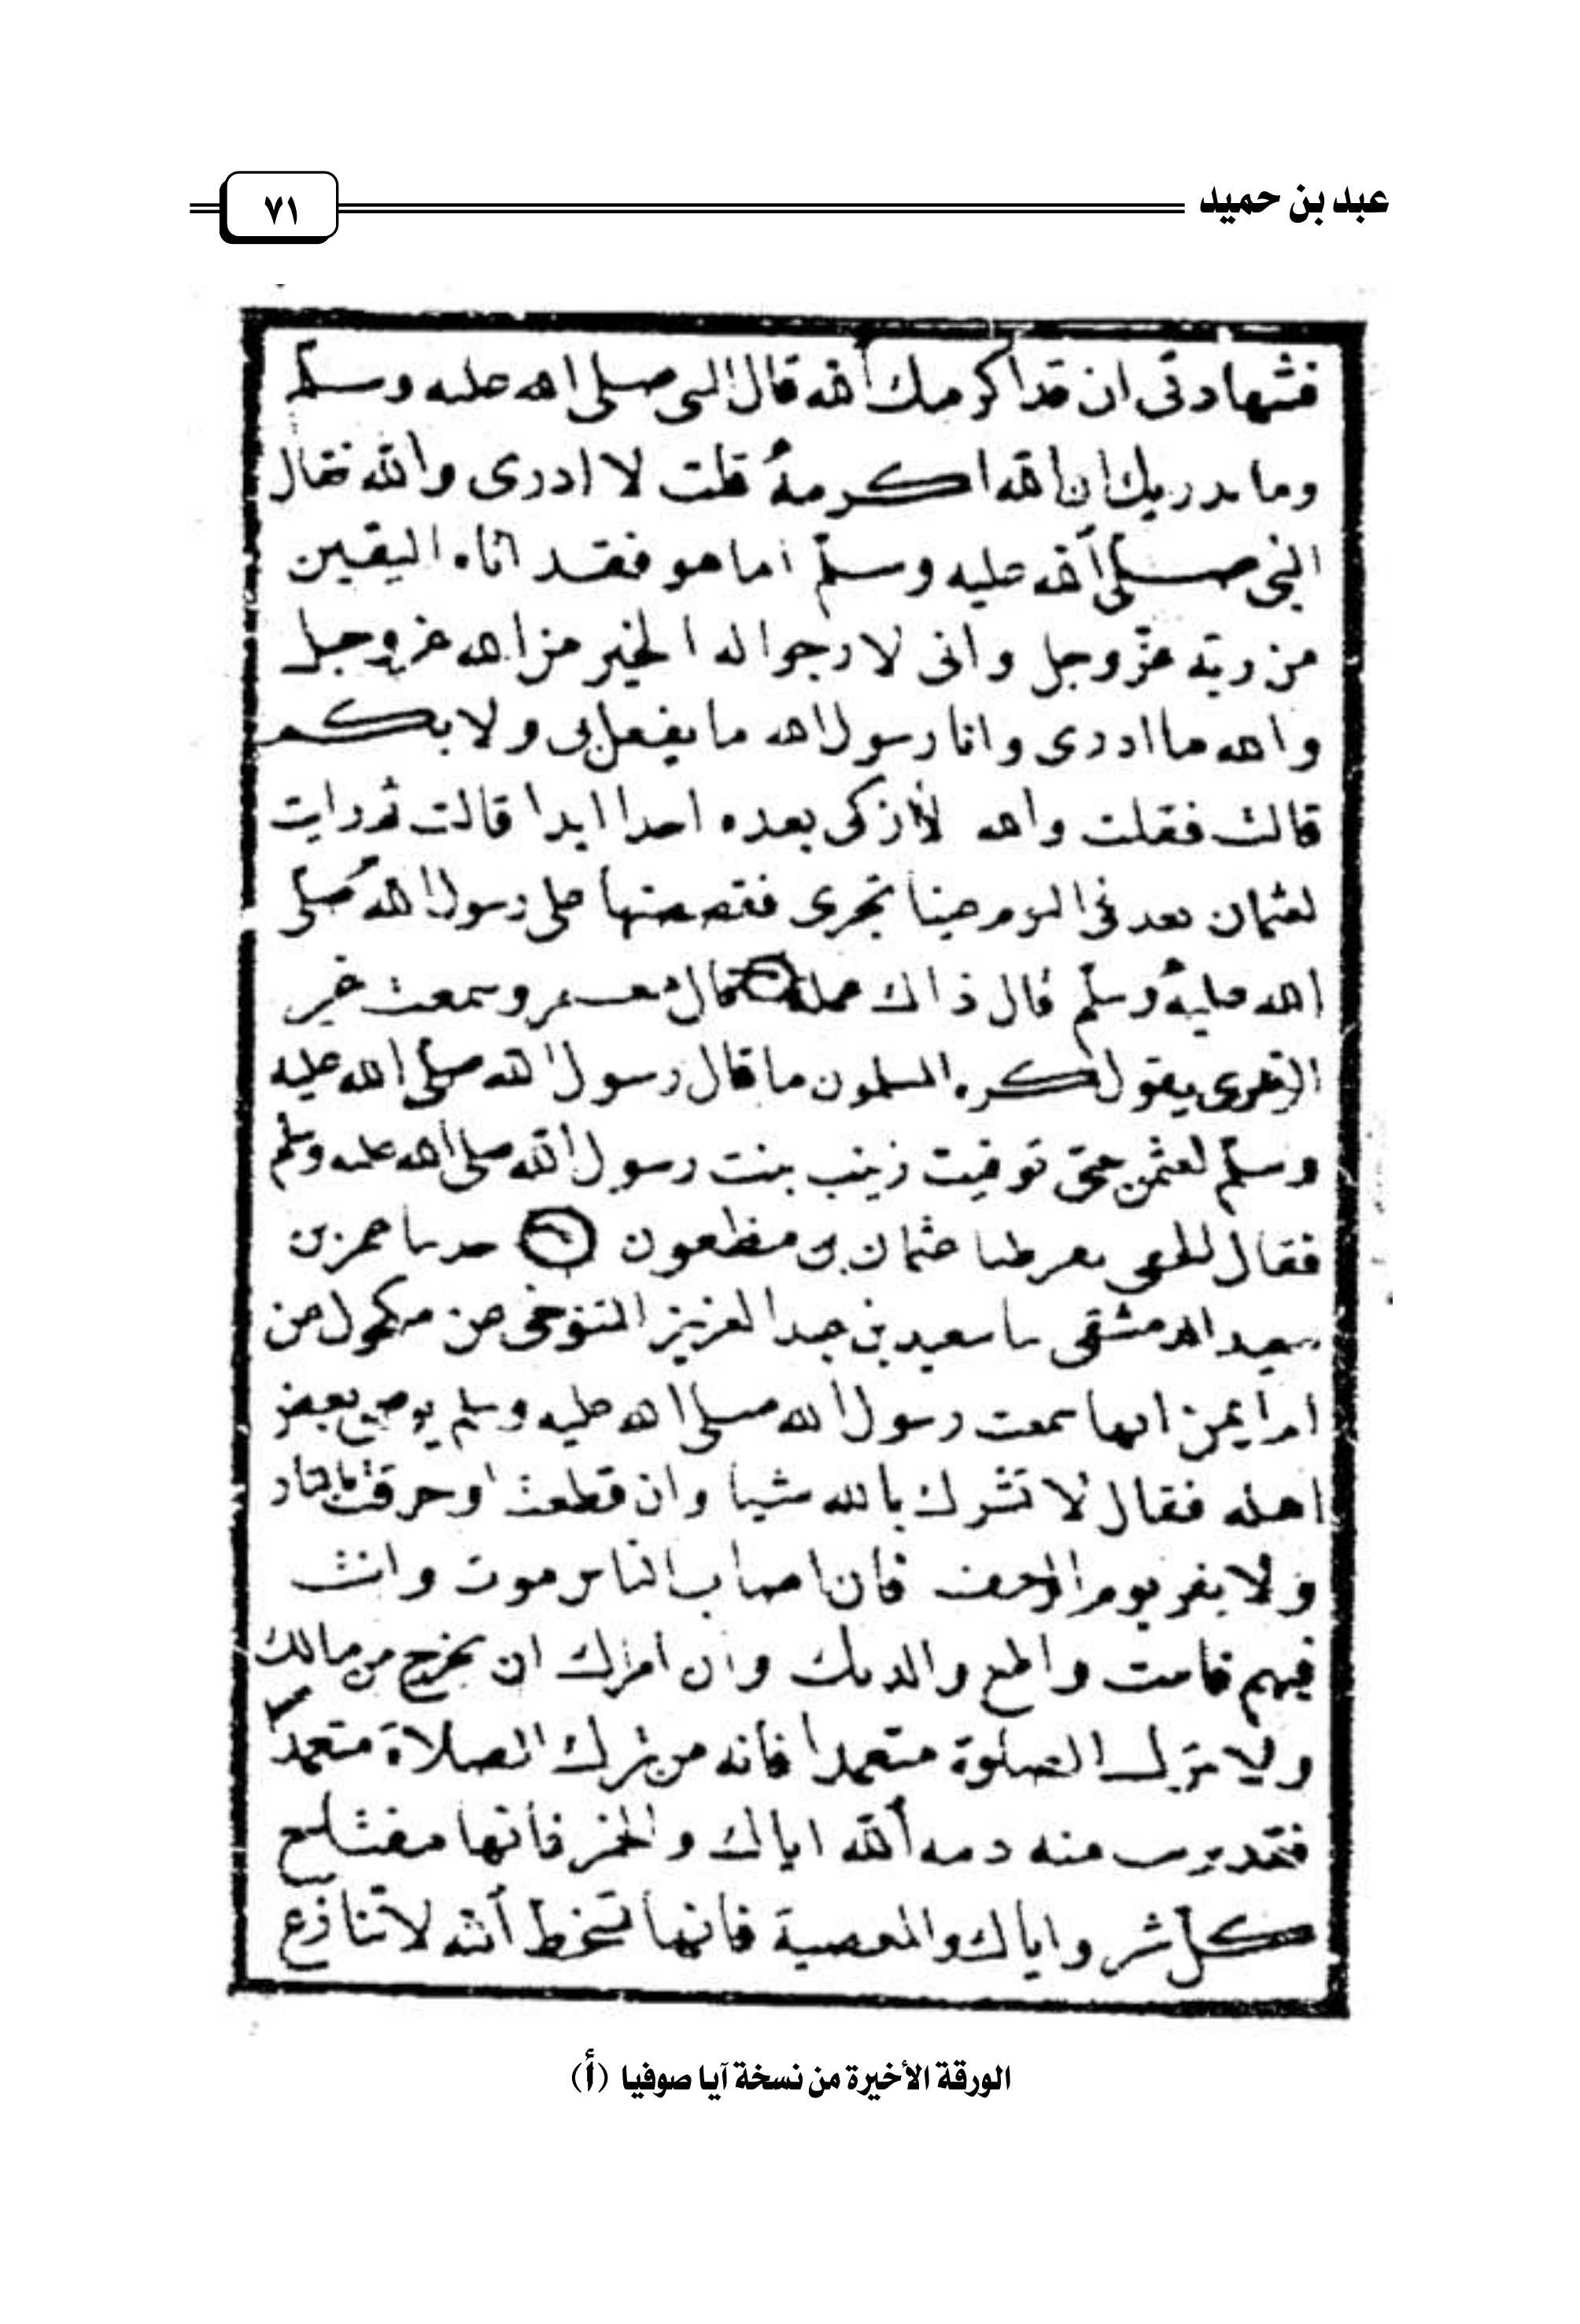 عبد بن حميد
٧١
فشهادتى ان قد اكرمك الله قال النبى صلى الله عليه وسلم
وما يدريك ان الله اكرمهُ قلت لا ادرى والله فقال
النبى صلى الله عليه وسلم اما هو فقد اتاه اليقين
من ربّه عزّ وجل وانى لارجوا له الخير من الله عز وجل
والله ما ادرى وانا رسول الله ما يفعل بى ولا بكم
قالت فقلت والله لا ازكى بعده احدا ابدا قالت ثم رايت
لعثمان بعد فى النوم عينا تجرى فقصصتها على رسول الله صلى
الله عليه وسلم قال ذاك عمله قال معمر وسمعت غير
الزهرى يقول كره المسلمون ما قال رسول الله صلى الله عليه
وسلم لعثمن حتى توفيت زينب بنت رسول الله صلى الله عليه وسلم
فقال الحقى بفرطنا عثمان بن مظعون حدثنا عمر بن
سعيد الدمشقى ثنا سعيد بن عبد العزيز التنوخى عن مكحول عن
ام ايمن انها سمعت رسول الله صلى الله عليه وسلم يوصى بعض
اهله فقال لا تشرك بالله شيا وان قطعت او حرقت بالنار
ولا يفر يوم الزحف فان اصاب الناس موت وانت
فيهم فاثبت واطع والديك وان امراك ان تخرج من مالك
ولا تترك الصلوة متعمدا فانه من ترك الصلاة متعمدا
فقد برئت منه ذمه الله اياك والخمر فانها مفتاح
كل شر واياك والمعصية فانها تسخط الله لا تنازع
الورقة الأخيرة من نسخة آيا صوفيا (أ)